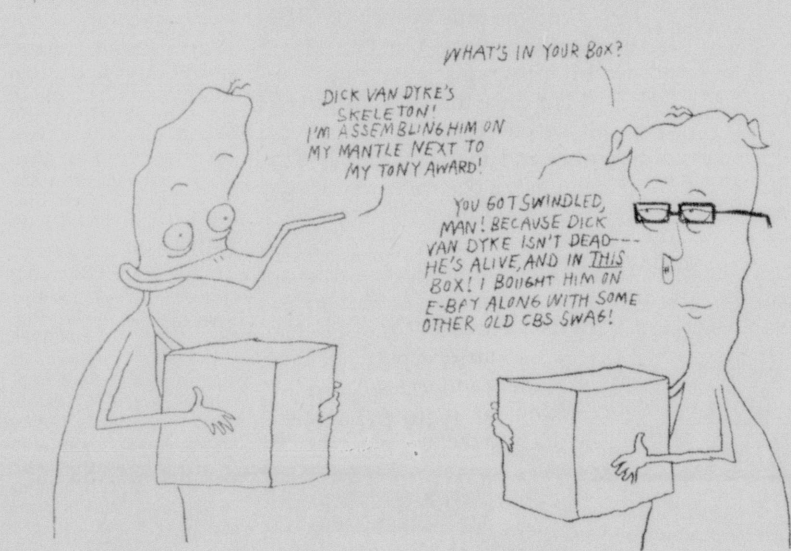 WHAT'S IN YOUR BOX?
DICK VAN DYKE'S
SKELETON!
I'M ASSEMBLING HIM ON
MY MANTLE NEXT TO
MY TONY AWARD!
YOU GOT SWINDLED,
MAN! BECAUSE DICK
VAN DYKE ISN'T DEAD---
HE'S ALIVE, AND IN THIS
BOX! I BOUGHT HIM ON
E-BAY ALONG WITH SOME
OTHER OLD CBS SWAG!